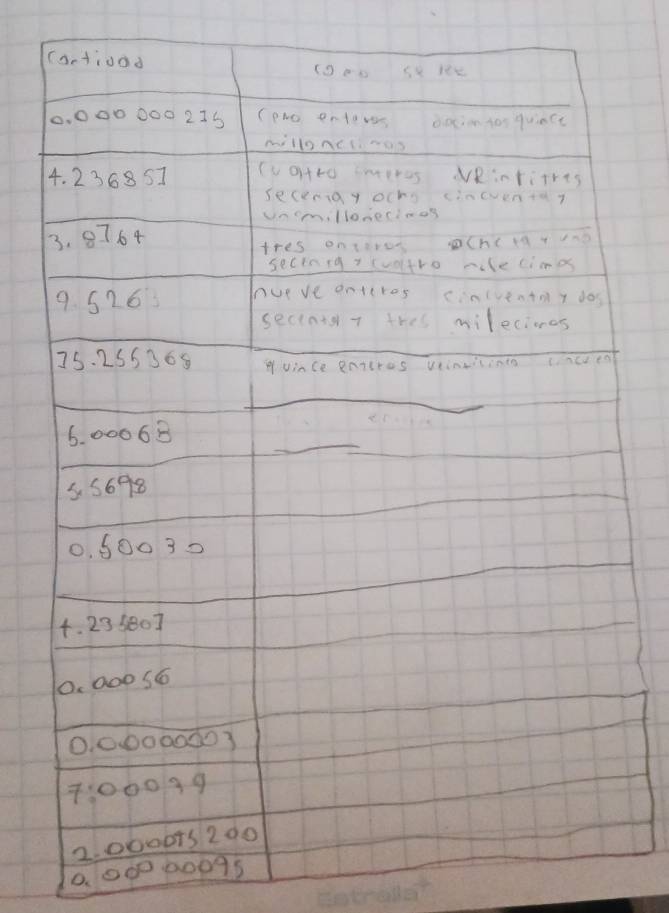 Cantidad como se lee
0.000 000 215 cero enteros docientos quince
millonecimos
4.236851 cuatro enteros veintitres
secenta y ocho cincuenta y
un millonecimos
3.8764 tres enteros
secenta y cuatro milecimos
9.526 nueve enteros cincuenta y dos
secenta y tres milecimos
15.255368 quince enteros veinticinco
5.00068
5.5698
0.50030
4.235801
0.00056
0.00000003
7.00039
2.000015200
0.00000095
Estrella